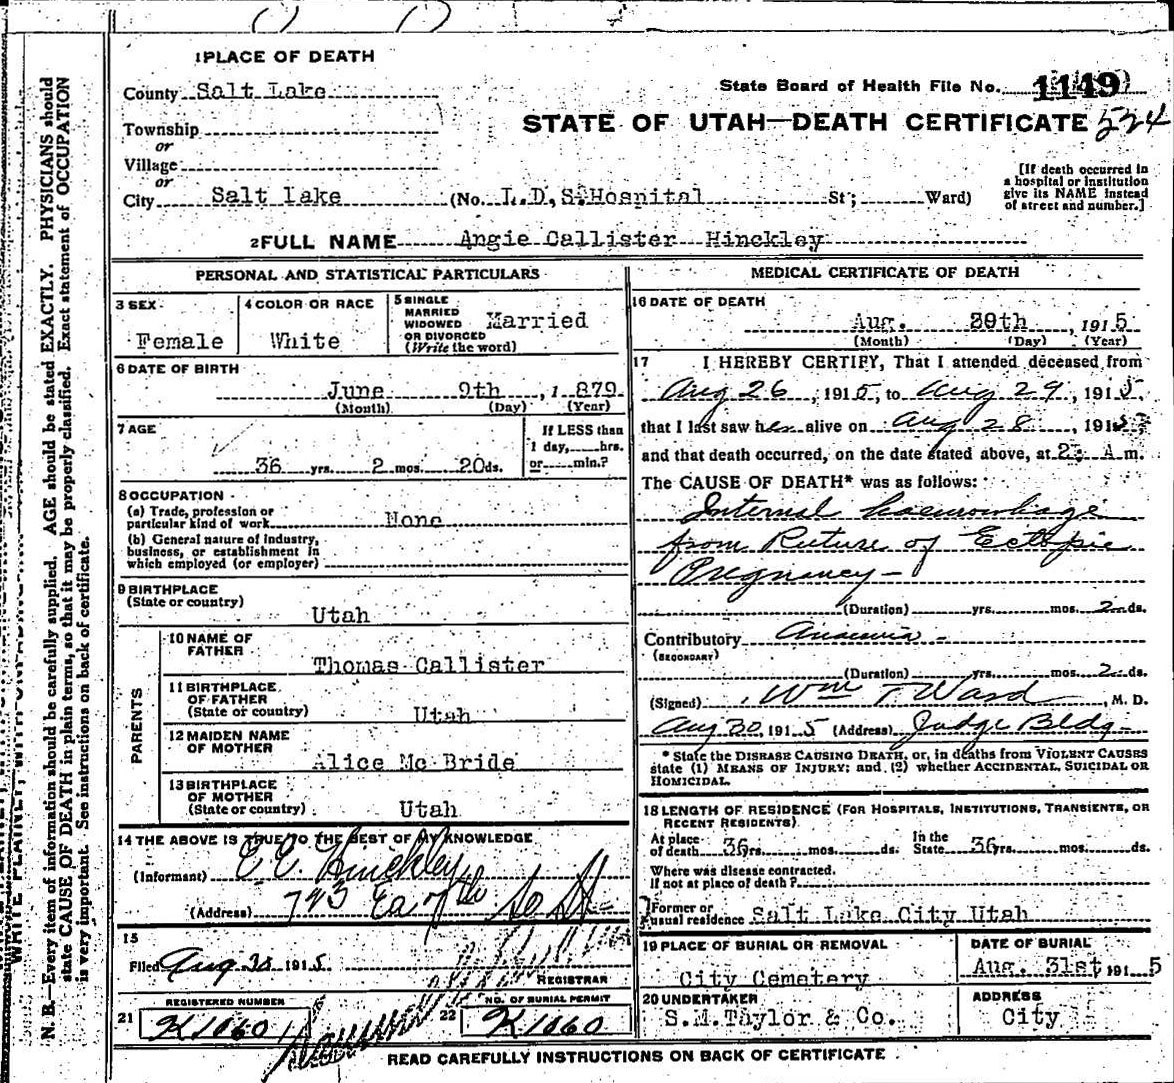 1 PLACE OF DEATH
County Salt Lake
State Board of Health File No. 1149
Township
or
Village
or
City Salt Lake (No. L.D,S.Hospital St; Ward)
STATE OF UTAH—DEATH CERTIFICATE 524
[If death occurred in
a hospital or institution
give its NAME instead
of street and number.]
2 FULL NAME Angie Callister Hinckley
PERSONAL AND STATISTICAL PARTICULARS
3 SEX
Female
4 COLOR OR RACE
White
5 SINGLE
MARRIED
WIDOWED
OR DIVORCED
(Write the word)
Married
6 DATE OF BIRTH
June 9th , 1 879
(Month) (Day) (Year)
7 AGE
36 yrs. 2 mos. 20 ds.
If LESS than
1 day, hrs.
or min.?
8 OCCUPATION
(a) Trade, profession or
particular kind of work None
(b) General nature of industry,
business, or establishment in
which employed (or employer)
9 BIRTHPLACE
(State or country)
Utah
PARENTS
10 NAME OF
FATHER
Thomas Callister
11 BIRTHPLACE
OF FATHER
(State or country) Utah
12 MAIDEN NAME
OF MOTHER
Alice Mc Bride
13 BIRTHPLACE
OF MOTHER
(State or country) Utah
14 THE ABOVE IS TRUE TO THE BEST OF MY KNOWLEDGE
(Informant) E E Hinckley
(Address) 743 Ea 7th So St
15
Filed Aug 30 1915
REGISTRAR
REGISTERED NUMBER
21 K1060
NO. OF BURIAL PERMIT
22 K1060
MEDICAL CERTIFICATE OF DEATH
16 DATE OF DEATH
Aug. 29th , 1915
(Month) (Day) (Year)
17 I HEREBY CERTIFY, That I attended deceased from
Aug 26 , 1915, to Aug 29 , 1915,
that I last saw her alive on Aug 28 , 1915
and that death occurred, on the date stated above, at 2: A m.
The CAUSE OF DEATH* was as follows:
Internal haemorrhage
from Ruture of Ectopic
Pregnancy -
(Duration) yrs. mos. 2 ds.
Contributory Anaemia -
(SECONDARY)
(Duration) yrs. mos. 2 ds.
(Signed) Wm T Ward , M. D.
Aug 30, 1915 (Address) Judge Bldg -
* State the DISEASE CAUSING DEATH, or, in deaths from VIOLENT CAUSES
state (1) MEANS OF INJURY; and (2) whether ACCIDENTAL, SUICIDAL OR
HOMICIDAL.
18 LENGTH OF RESIDENCE (FOR HOSPITALS, INSTITUTIONS, TRANSIENTS, OR
RECENT RESIDENTS)
At place
of death 36 yrs. mos. ds.
In the
State 36 yrs. mos. ds.
Where was disease contracted,
if not at place of death ?
Former or
usual residence Salt Lake City Utah
19 PLACE OF BURIAL OR REMOVAL
City Cemetery
DATE OF BURIAL
Aug. 31st 1915
20 UNDERTAKER
S.M.Taylor & Co.
ADDRESS
City
READ CAREFULLY INSTRUCTIONS ON BACK OF CERTIFICATE
N. B.—Every item of information should be carefully supplied. AGE should be stated EXACTLY. PHYSICIANS should
state CAUSE OF DEATH in plain terms, so that it may be properly classified. Exact statement of OCCUPATION
is very important. See instructions on back of certificate.